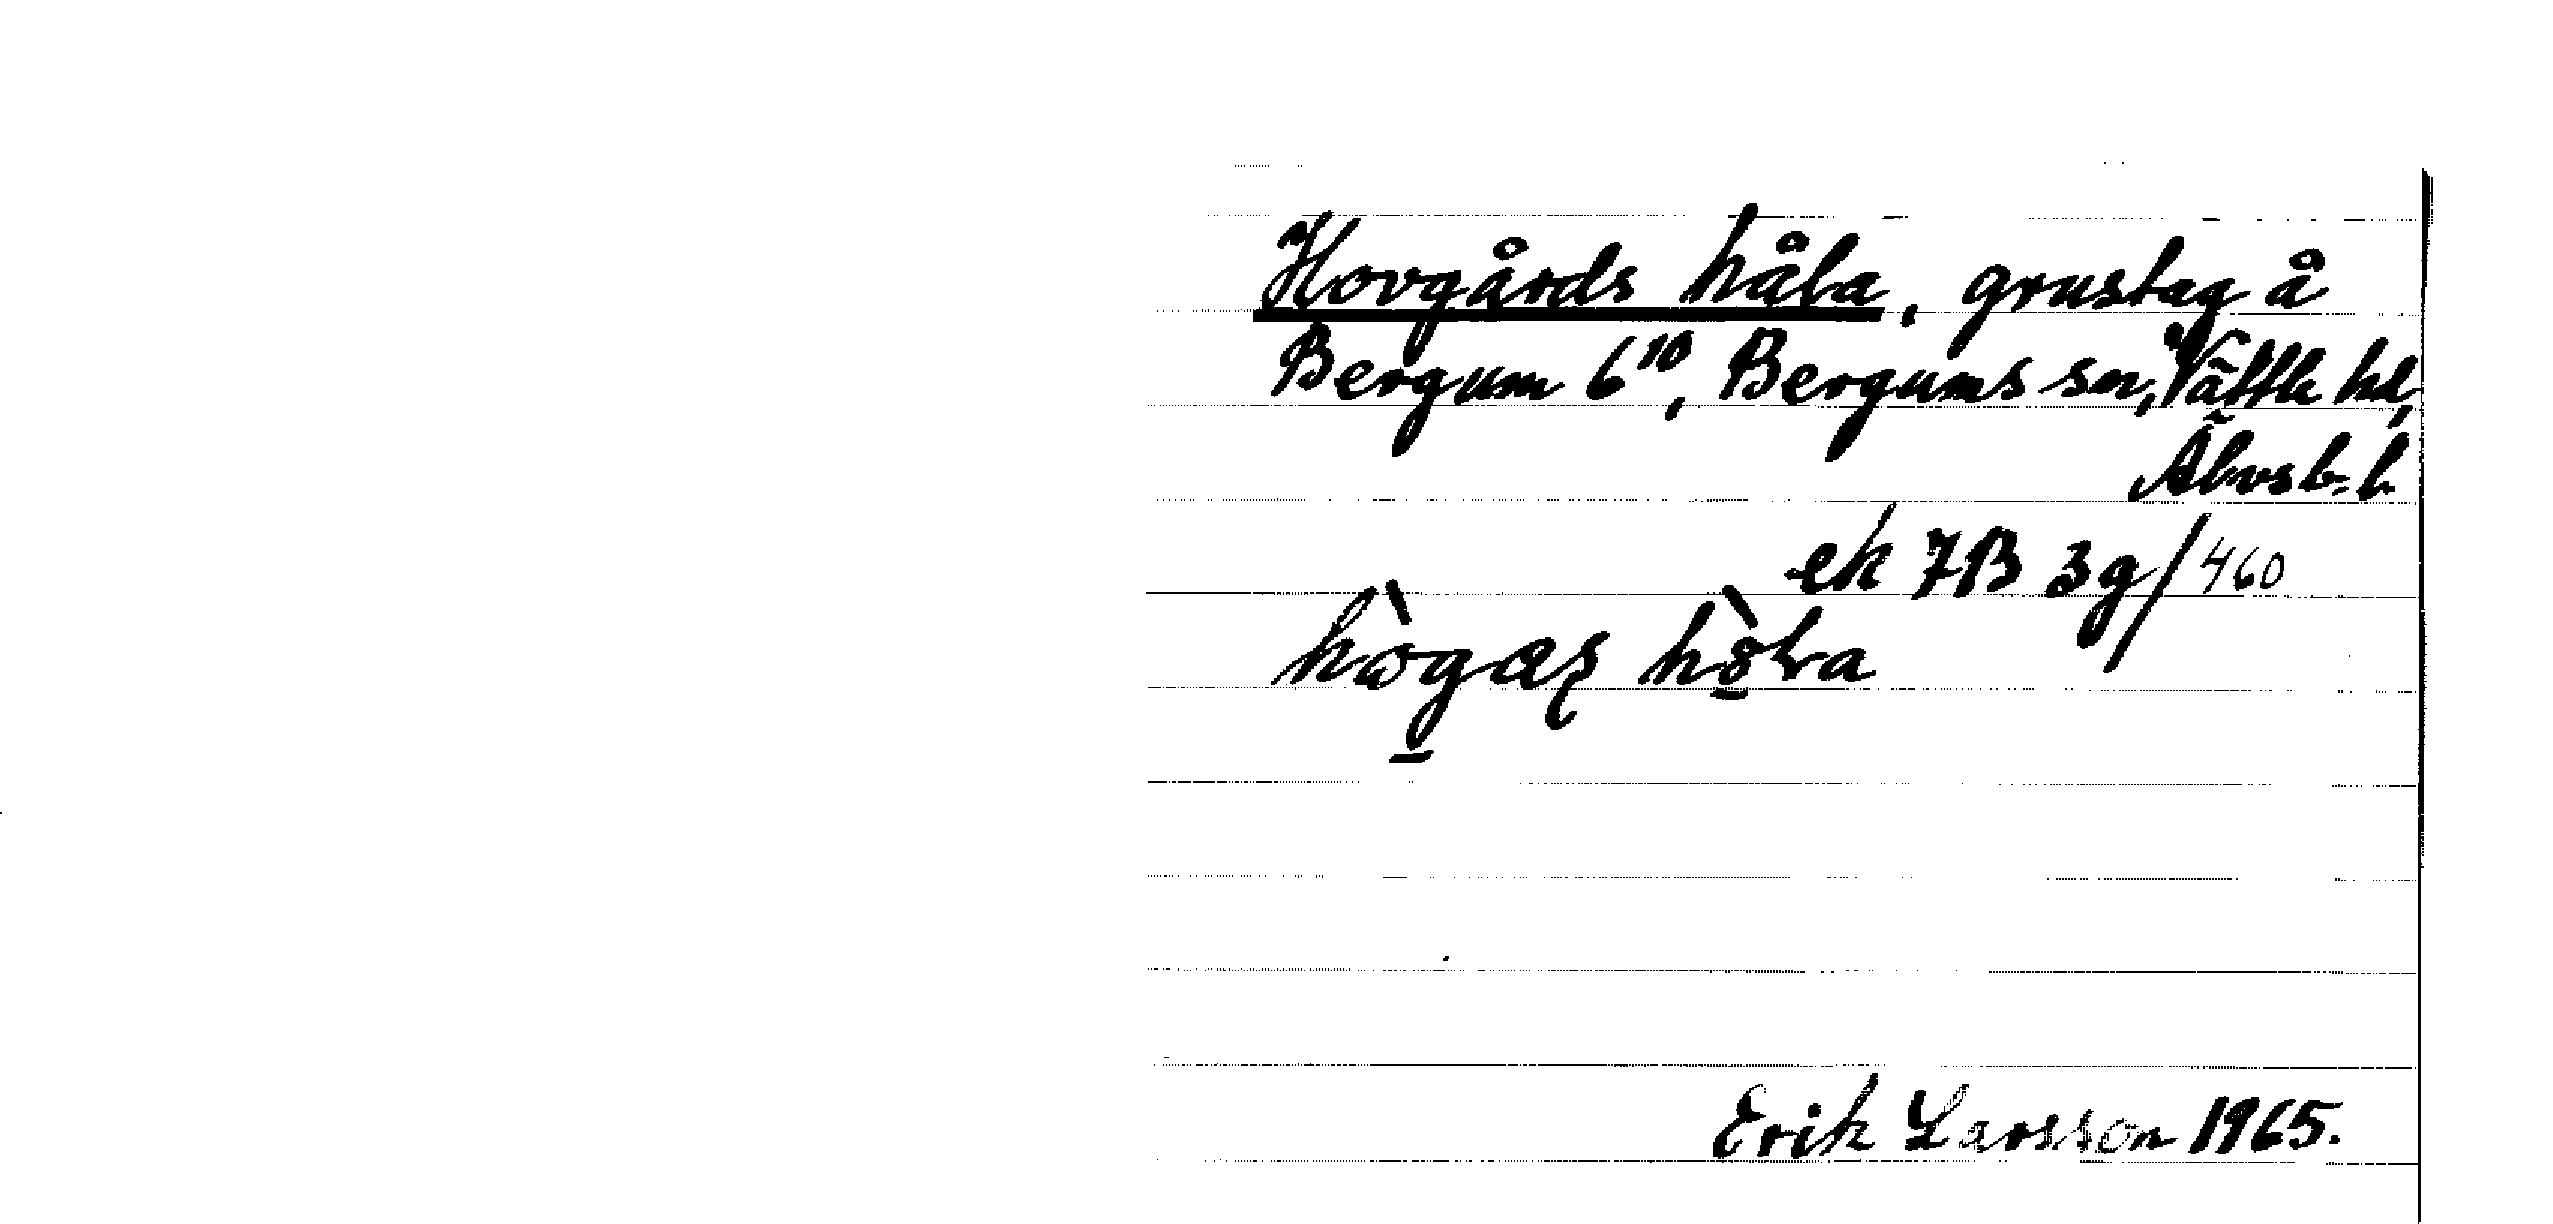 Hovgårds håla, grustag å
Bergum 6¹⁰, Bergums sn, Vättle hd,
Älvsb. l.
ek 7B 3g/460
Erik Larsson 1965.